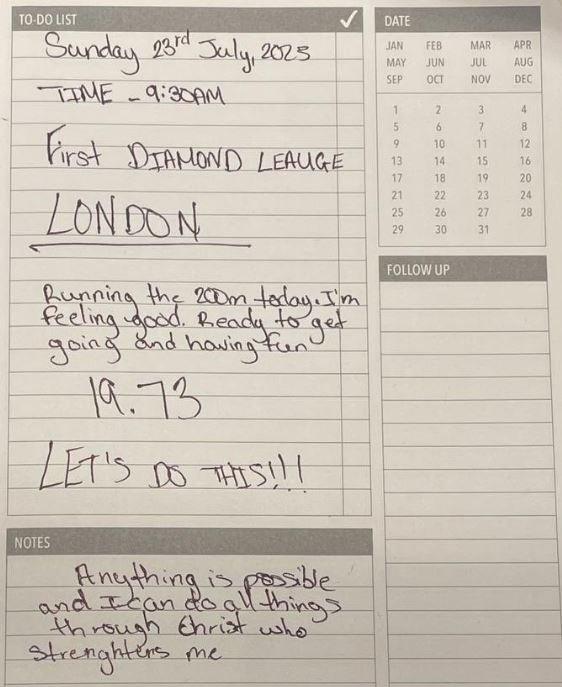 TO-DO LIST ✓
Sunday 23rd July, 2023
TIME - 9:30AM
First DIAMOND LEAUGE
LONDON
Running the 200m today. I'm
feeling good. Ready to get
going and having fun
19.73
LET'S DO THIS!!!
NOTES
Anything is possible
and I can do all things
through Christ who
strenghtens me
DATE
JAN FEB MAR APR
MAY JUN JUL AUG
SEP OCT NOV DEC
1 2 3 4
5 6 7 8
9 10 11 12
13 14 15 16
17 18 19 20
21 22 23 24
25 26 27 28
29 30 31
FOLLOW UP